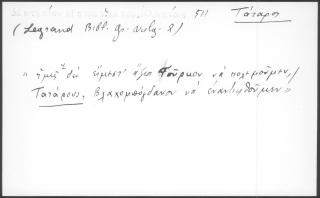 511 Τάταροι
(Legrand Bibl. gr. vulg. 2)
"ἡμεῖς δὲ εἴμεστ' ἄξιοι Τοῦρκον νὰ πολεμοῦμεν,/
Τατάρους, Βλαχομπόγδανον νὰ ἐναντιωθοῦμεν"